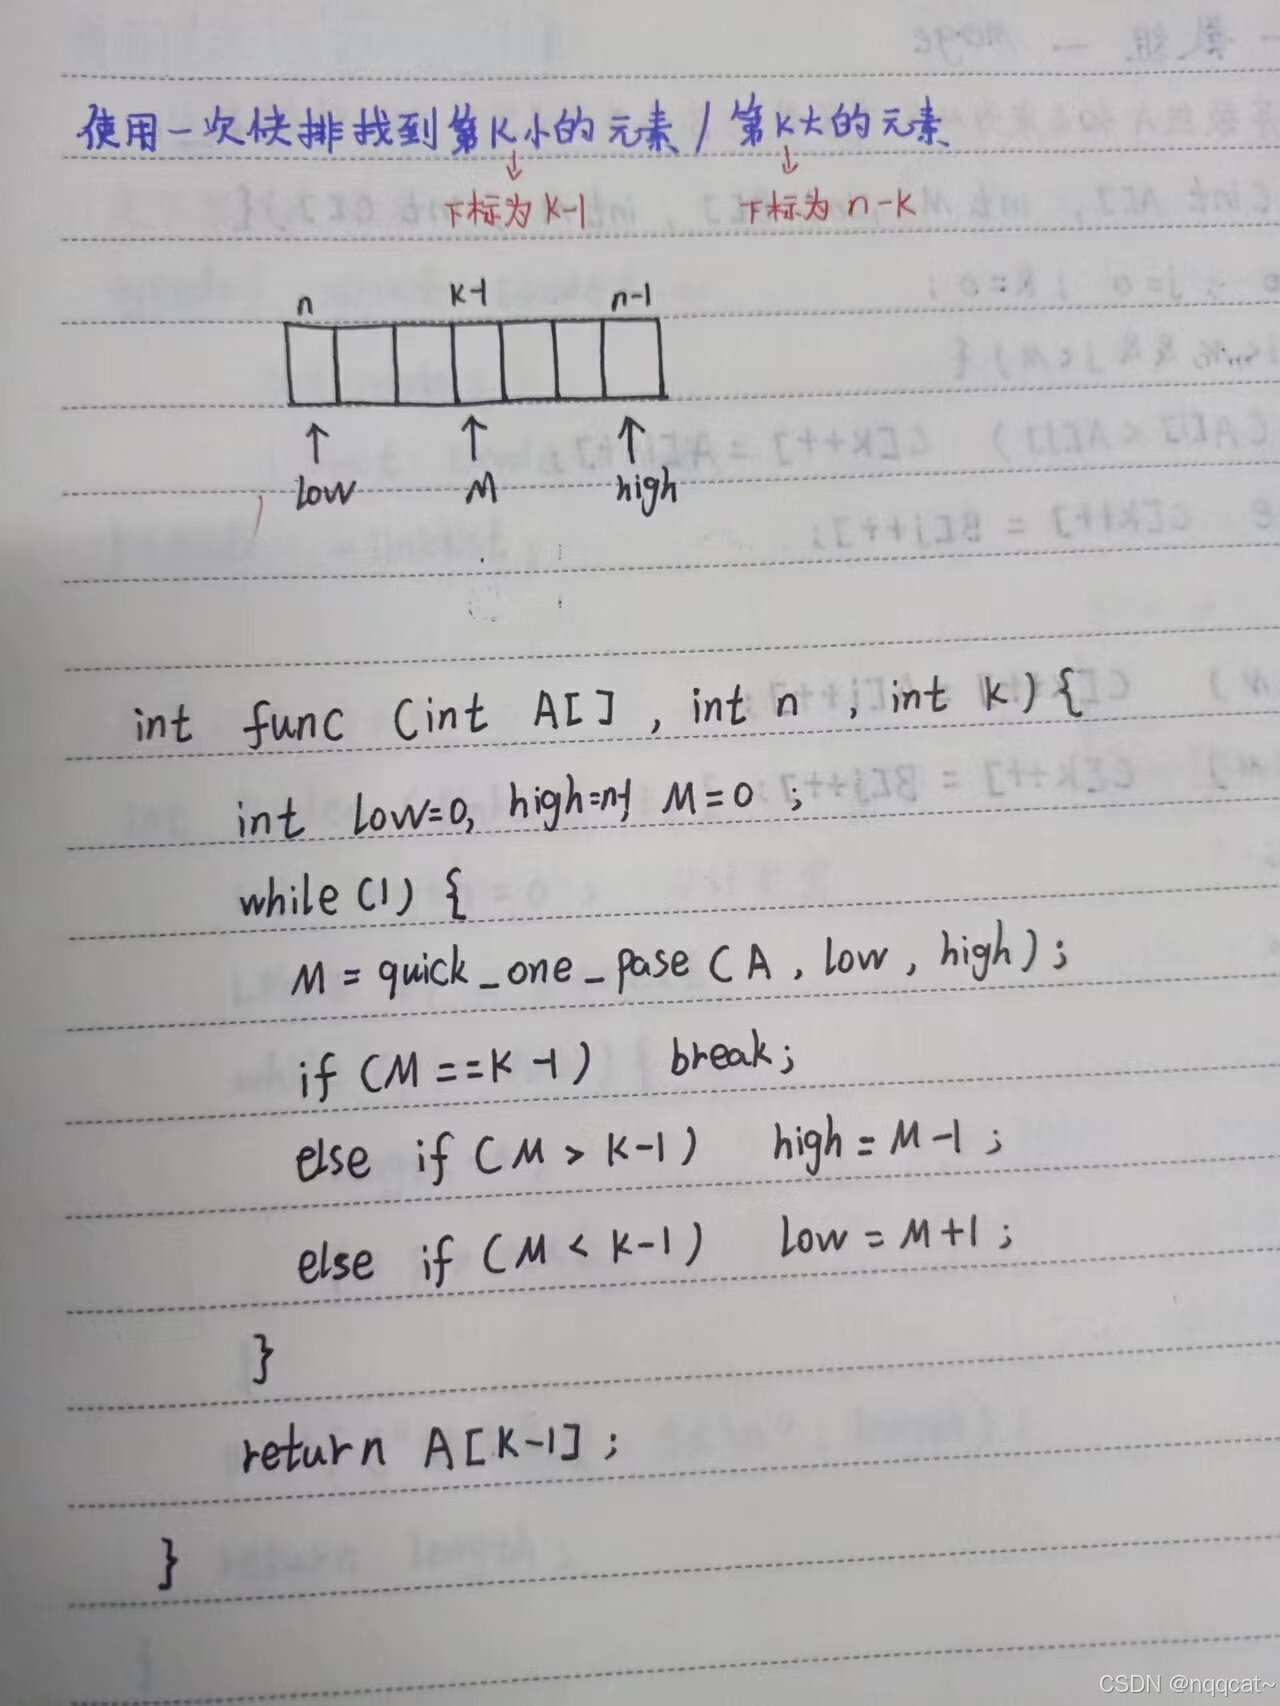 使用一次快排找到第K小的元素 / 第K大的元素
下标为 K-1 下标为 n-K
n K-1 n-1
low M high
int func (int A[] , int n , int K) {
int low=0, high=n-1 M=0 ;
while (1) {
M = quick_one_pase (A , low , high) ;
if (M == K-1) break ;
else if (M > K-1) high = M-1 ;
else if (M < K-1) low = M+1 ;
}
return A[K-1] ;
}
CSDN @nqqcat~